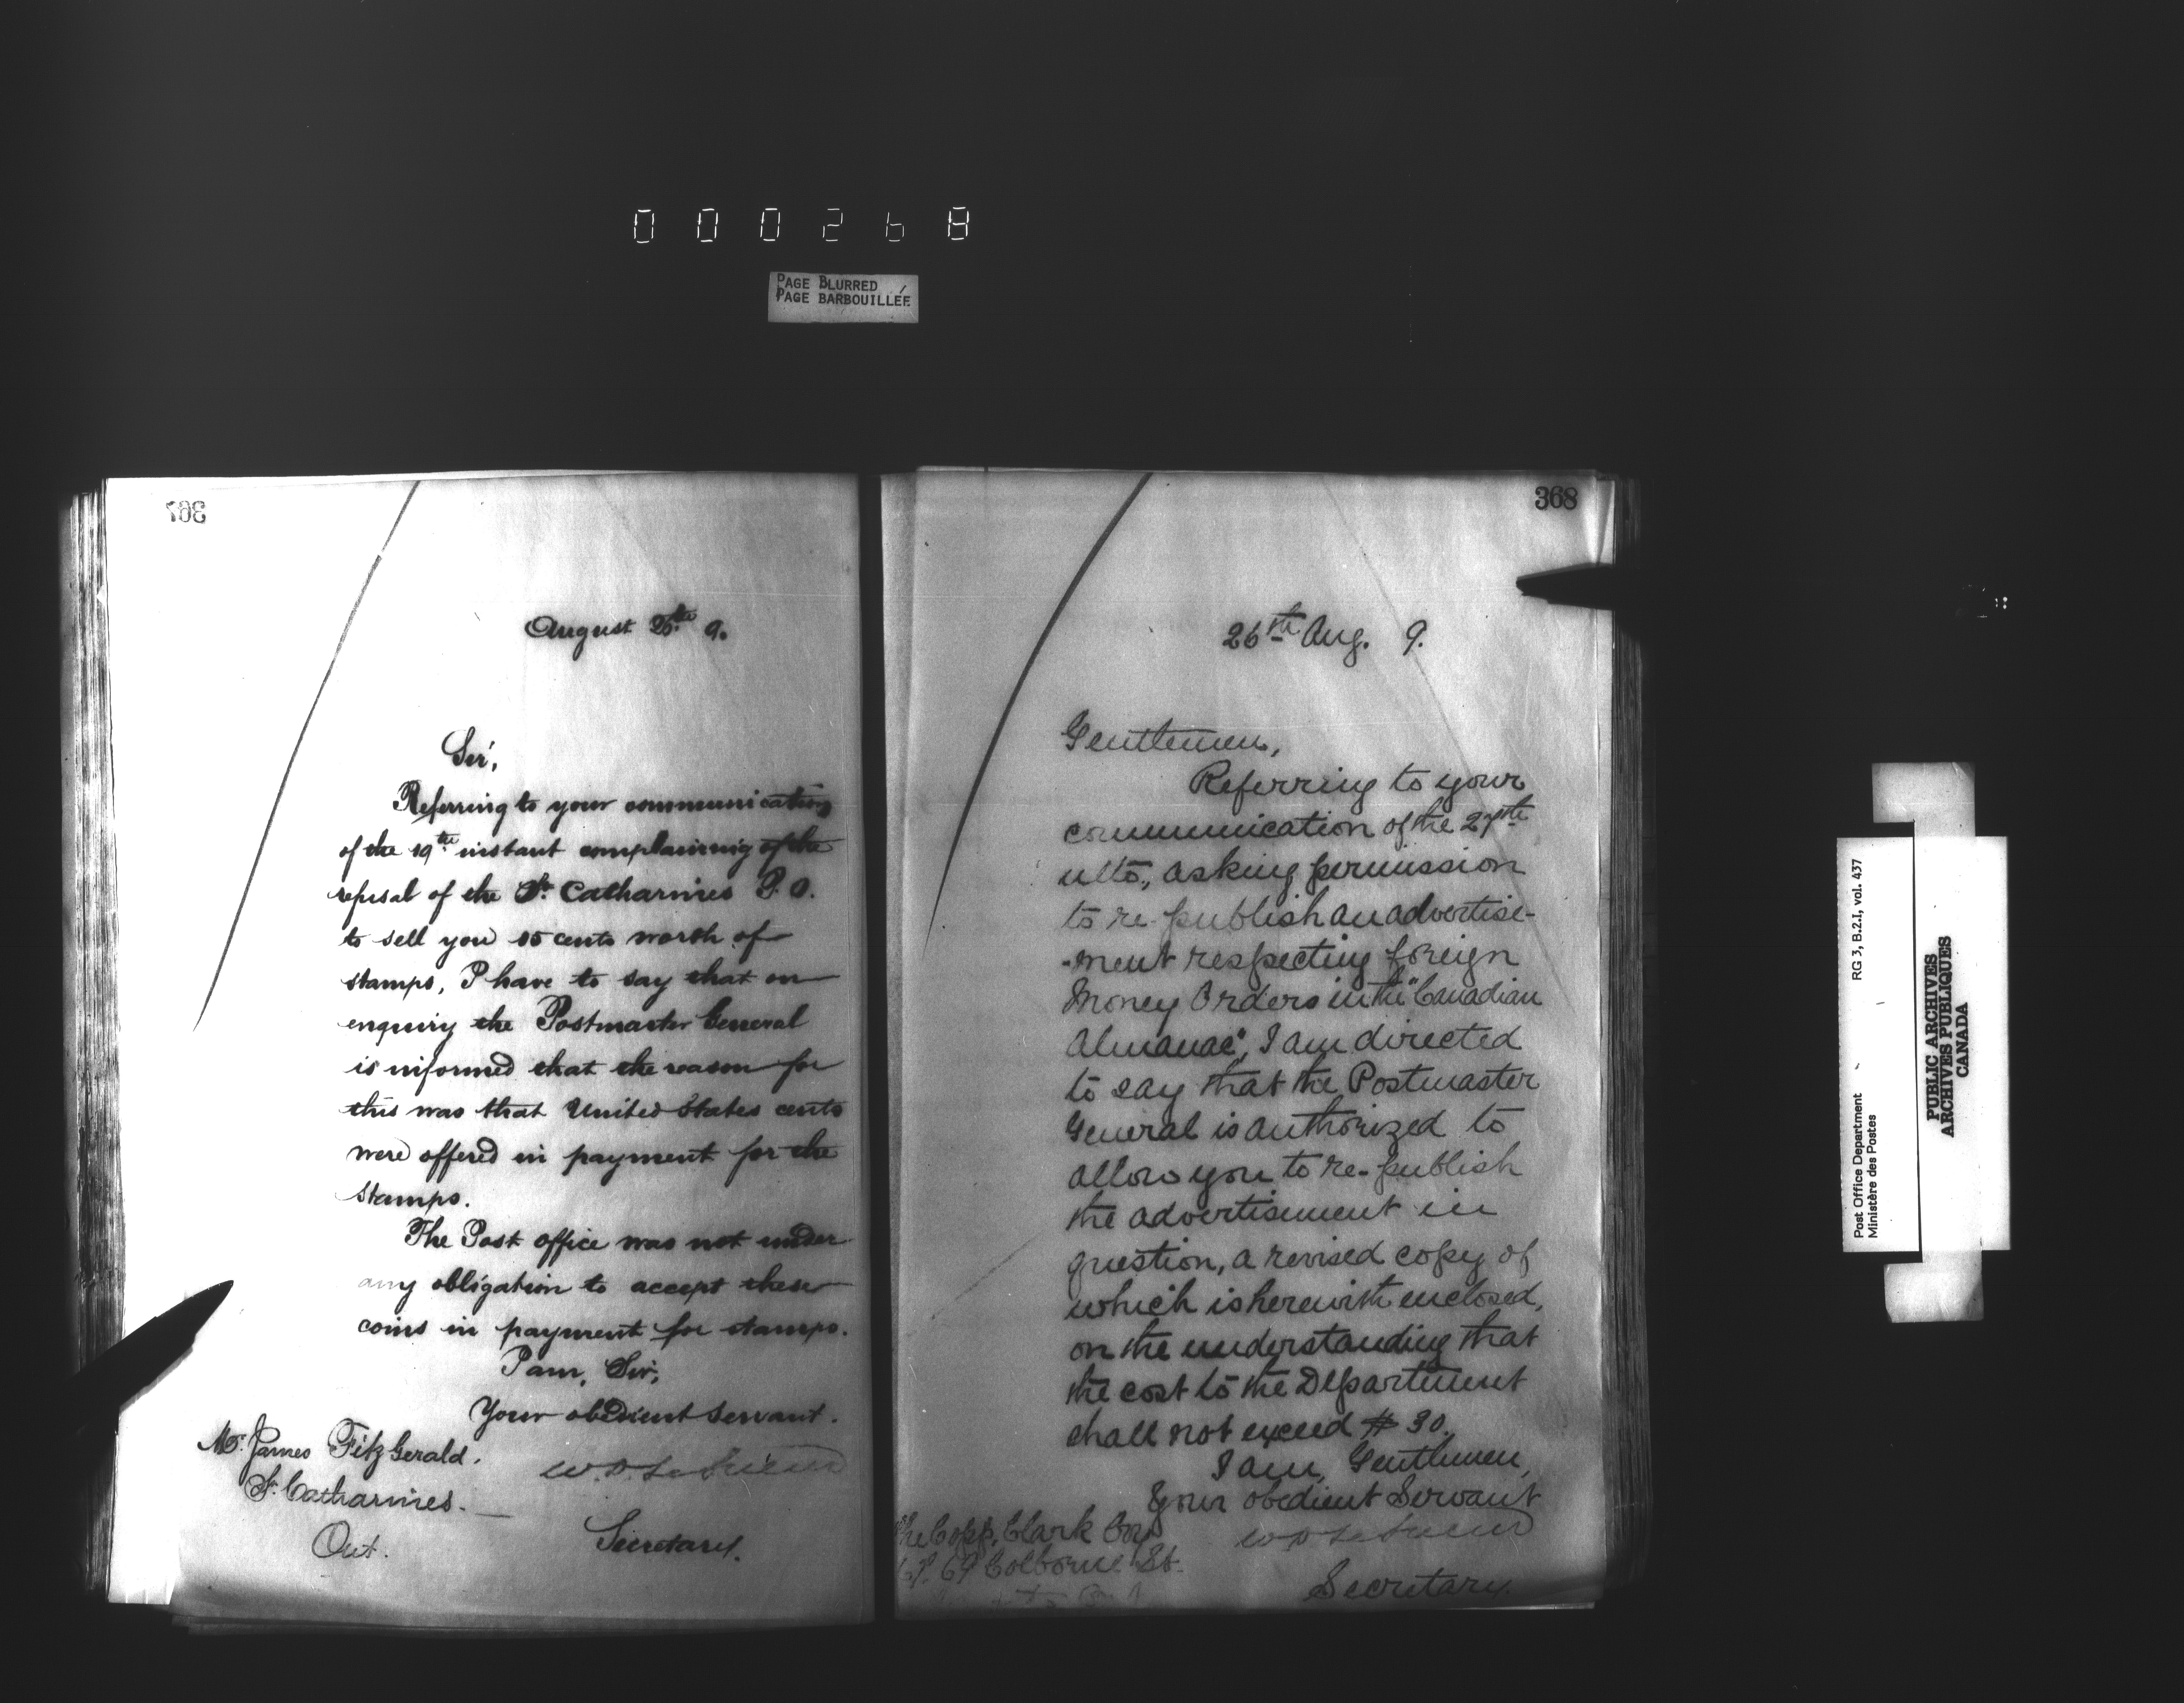 000268
PAGE BLURRED
PAGE BARBOUILLÉE
367
August 26th 9.
Sir,
Referring to your communication
of the 19th instant complaining of the
refusal of the St. Catharines P.O.
to sell you 25 cents worth of
stamps, I have to say that on
enquiry the Postmaster General
is informed that the reason for
this was that United States cents
were offered in payment for the
stamps.
The Post office was not under
any obligation to accept these
coins in payment for stamps.
I am, Sir,
Your obedient servant.
Mr. James FitzGerald.
St. Catharines.
Ont.
Secretary.
368
26th Aug. 9.
Gentlemen,
Referring to your
communication of the 27th
ulto., asking permission
to re-publish an advertise-
-ment respecting foreign
Money Orders in the "Canadian
Almanac", I am directed
to say that the Postmaster
General is authorized to
allow you to re-publish
the advertisement in
question, a revised copy of
which is herewith enclosed,
on the understanding that
the cost to the Department
shall not exceed $30.
I am, Gentlemen,
Your obedient Servant
The Copp, Clark Coy
67. 69 Colborne St.
Secretary.
Post Office Department RG 3, B.2.I, vol. 437
Ministère des Postes
PUBLIC ARCHIVES
ARCHIVES PUBLIQUES
CANADA